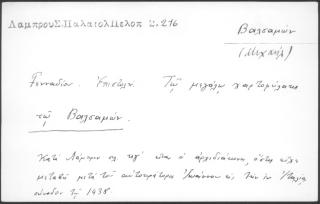 Λάμπρου Σ. Παλαιολ Πελοπ Σ. 216
Βαλσαμών
(Μιχαήλ)
Γενναδίου. Ἐπιστολή. Τῷ μεγάλῳ χαρτοφύλακι
τῷ Βαλσαμών.
Κατὰ Λάμπρον σελ. κγ' ὁ ἀρχιδιάκονος, ὅστις εἶχε
μεταβῆ μετὰ τοῦ αὐτοκράτορος Ἰωάννου εἰς τὴν ἐν Ἰταλίᾳ
σύνοδον τῇ 1438.